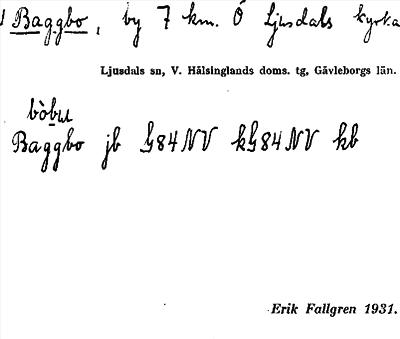 Baggbo, by 7 km. Ö Ljusdals kyrka
Ljusdals sn, V. Hälsinglands doms. tg, Gävleborgs län.
Baggbo jb G84NV kG84NV kb
Erik Fallgren 1931.